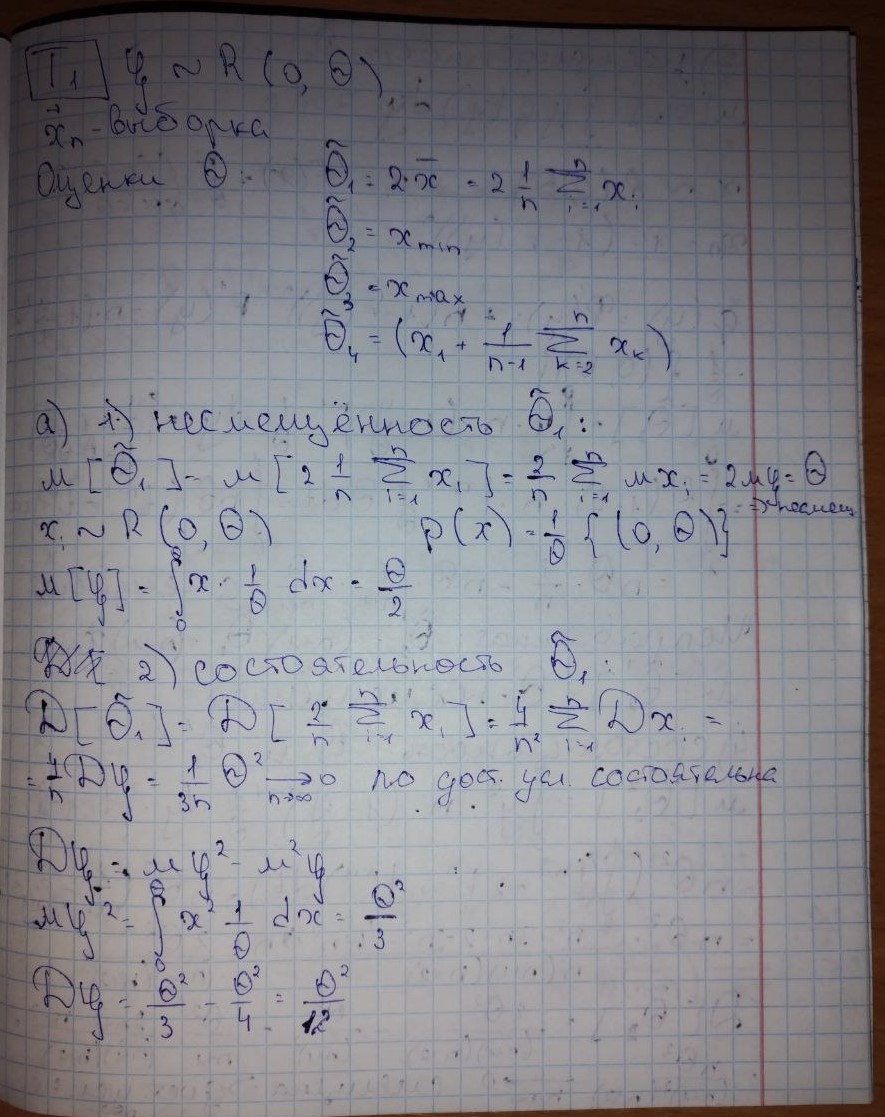 T₁ ξ ~ R(0, Θ)
x⃗ₙ - выборка
Оценки Θ: Θ̃₁ = 2·x̄ = 2 1/n Σᵢ₌₁ⁿ xᵢ
Θ̃₂ = x_min
Θ̃₃ = x_max
Θ̃₄ = (x₁ + 1/(n-1) Σₖ₌₂ⁿ xₖ)
а) 1) несмещённость Θ̃₁:
м[Θ̃₁] = м[2 1/n Σᵢ₌₁ⁿ xᵢ] = 2/n Σᵢ₌₁ⁿ м xᵢ = 2мξ = Θ
=> несмещ
xᵢ ~ R(0, Θ) p(x) = 1/Θ {(0, Θ)}
м[ξ] = ∫₀^Θ x · 1/Θ dx = Θ/2
2) состоятельность Θ̃₁:
D[Θ̃₁] = D[2/n Σᵢ₌₁ⁿ xᵢ] = 4/n² Σᵢ₌₁ⁿ D xᵢ =
= 4/n Dξ = 1/3n Θ² →_{n→∞} 0 по дост. усл. состоятельна
Dξ = мξ² - м²ξ
мξ² = ∫₀^Θ x² 1/Θ dx = Θ²/3
Dξ = Θ²/3 - Θ²/4 = Θ²/12